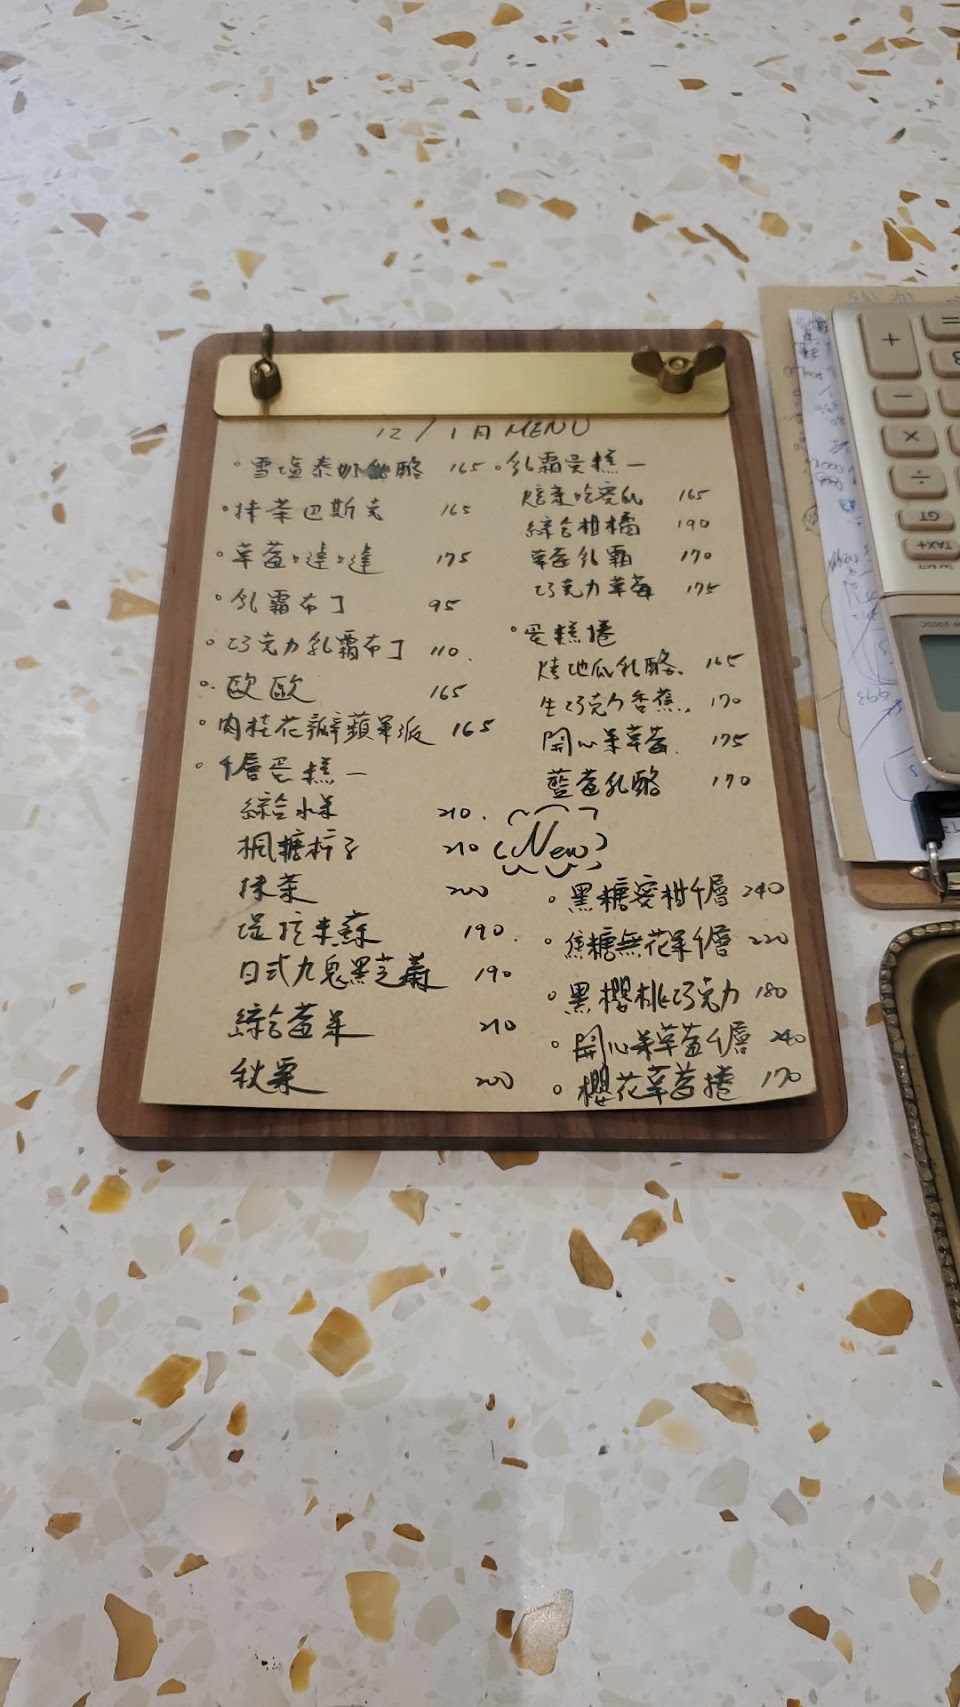 12/1月 MENU
。雪塩泰奶酪 165
。抹茶巴斯克 165
。草莓噠噠 175
。乳霜布丁 95
。巧克力乳霜布丁 110.
。歐歐 165
。肉桂花瓣蘋果派 165
。千層蛋糕—
綜合水果 210.
楓糖柿子 210
抹茶 200
堤拉米蘇 190.
日式九鬼黑芝麻 190
綜合莓果 210
秋栗 200
。乳霜蛋糕—
焙茶 165
綜合柑橘 190
草莓乳霜 170
巧克力草莓 175
。蛋糕捲
烤地瓜乳酪. 165
生巧克力香蕉. 170
開心果草莓. 175
藍莓乳酪 170
New
。黑糖蜜柑千層 240
。焦糖無花果千層 220
。黑櫻桃巧克力 180
。開心果草莓千層 240
。櫻花草莓捲 170
GT
TAX+
TAX RATE